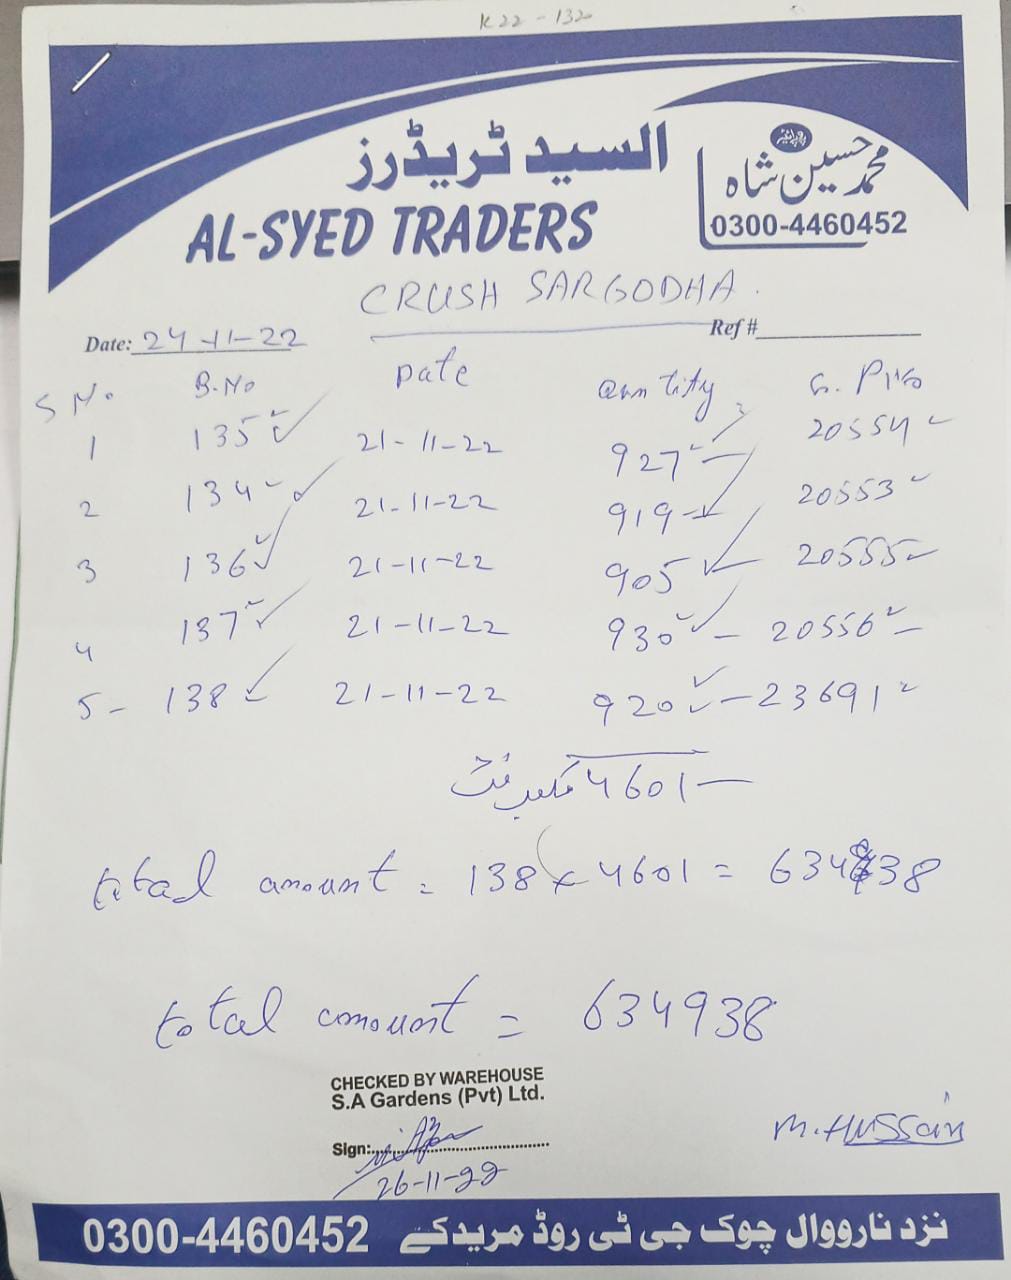 K22-132
السید ٹریڈرز
پروپرائیٹر
محمد حسین شاہ
AL-SYED TRADERS
0300-4460452
CRUSH SARGODHA.
Date: 24-11-22 Ref #
S No. B.No Date Quantity
1 135 21-11-22 927 20554
2 134 21-11-22 919 20553
3 136 21-11-22 905 20555
4 137 21-11-22 930 - 20556
5- 138 21-11-22 920 - 23691
4601 مکعب فٹ
total amount = 138 x 4601 = 634938
total amount = 634938
CHECKED BY WAREHOUSE
S.A Gardens (Pvt) Ltd.
Sign:
26-11-22
M.Hussain
0300-4460452 نزد نارووال چوک جی ٹی روڈ مریدکے